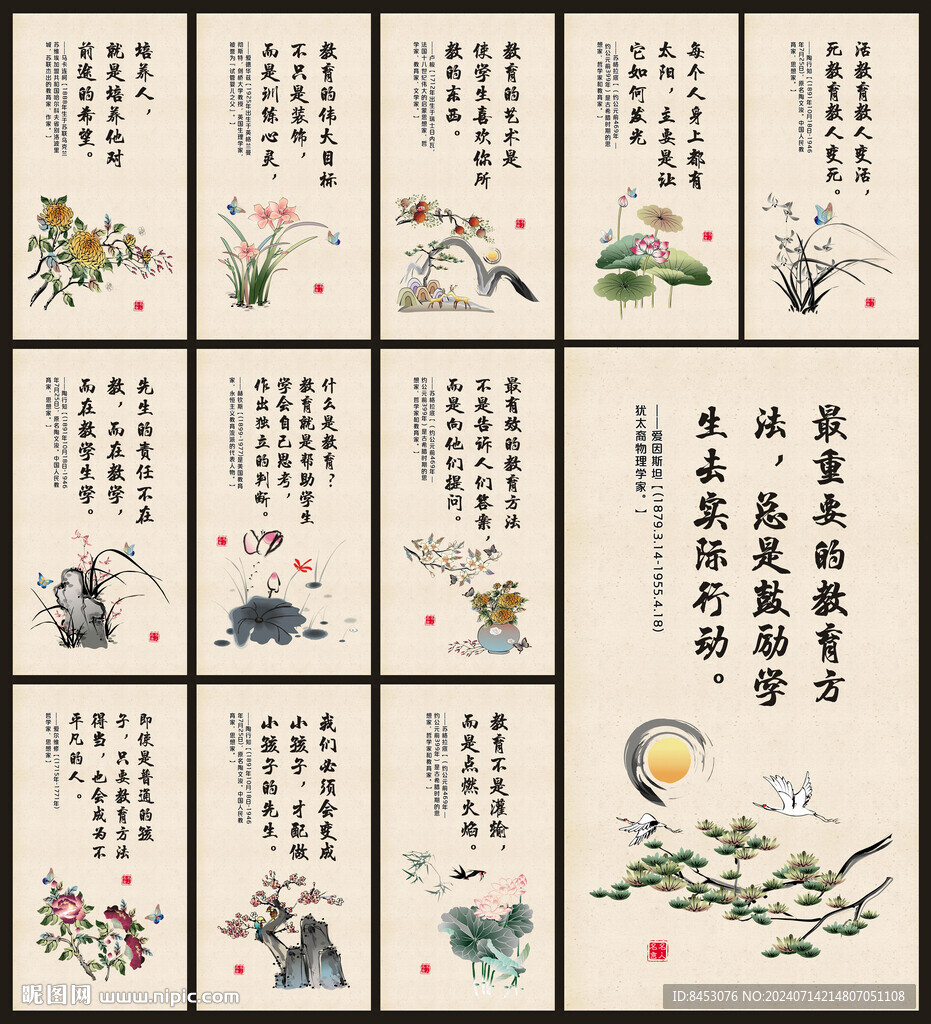 培养人，
就是培养他对
前途的希望。
教育的伟大目标
不只是装饰，
而是训练心灵，
教育的艺术是
使学生喜欢你所
教的东西。
每个人身上都有
太阳，主要是让
它如何发光
活教育教人变活，
死教育教人变死。
先生的责任不在
教，而在教学，
而在教学生学。
什么是教育？
教育就是帮助学生
学会自己思考，
作出独立的判断。
最有效的教育方法
不是告诉人们答案，
而是向他们提问。
最重要的教育方
法，总是鼓励学
生去实际行动。
——爱因斯坦【(1879.3.14-1955.4.18)
犹太裔物理学家。】
即使是普通的孩
子，只要教育方法
得当，也会成为不
平凡的人。
——爱尔维修【(1715年-1771年)
哲学家、思想家】
我们必须会变成
小孩子，才配做
小孩子的先生。
教育不是灌输，
而是点燃火焰。
昵图网 www.nipic.com
ID:8453076 NO:20240714214807051108